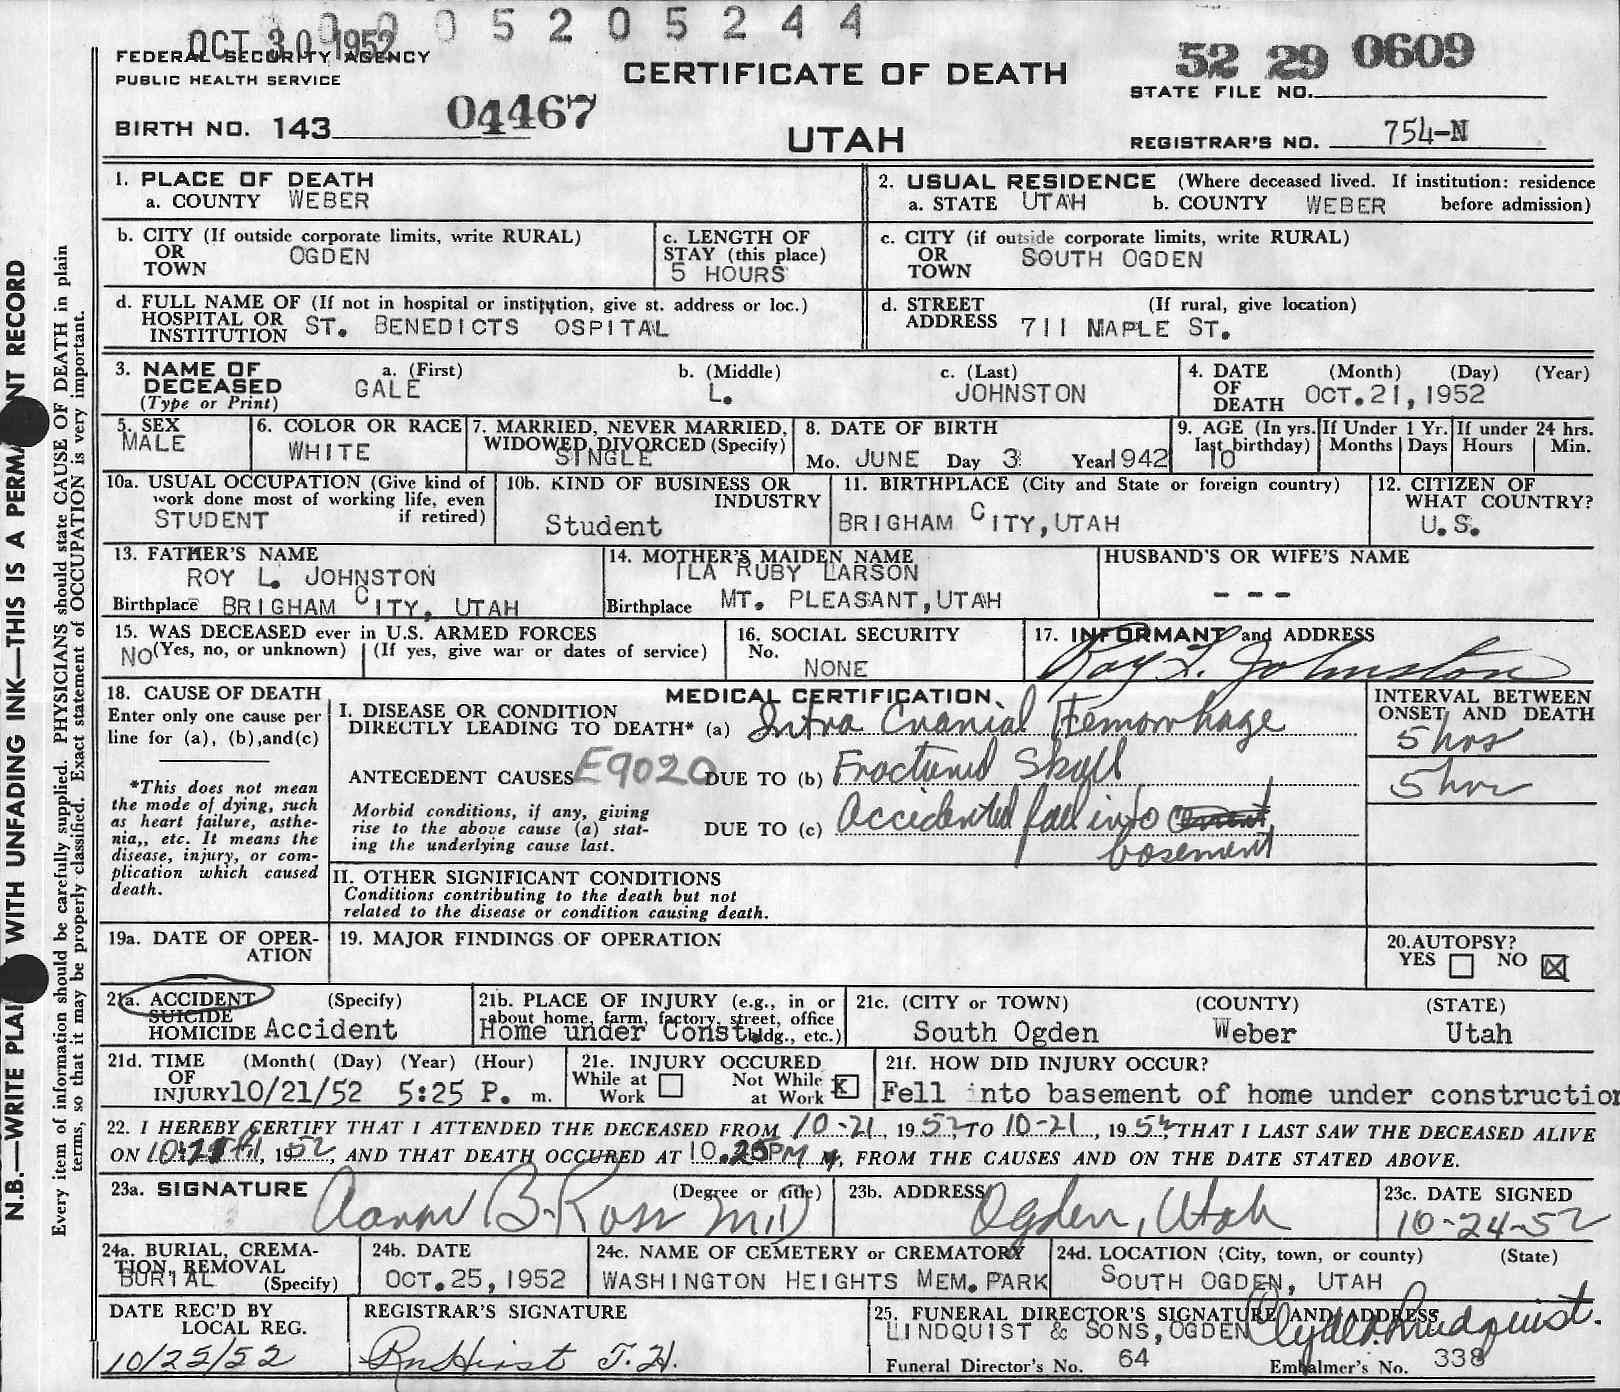 0 0 0 5 2 0 5 2 4 4
OCT 30 1952
FEDERAL SECURITY AGENCY
PUBLIC HEALTH SERVICE
CERTIFICATE OF DEATH
UTAH
52 29 0609
STATE FILE NO.
BIRTH NO. 143 04467
REGISTRAR'S NO. 754-N
1. PLACE OF DEATH
a. COUNTY WEBER
2. USUAL RESIDENCE (Where deceased lived. If institution: residence
a. STATE UTAH b. COUNTY WEBER before admission)
b. CITY (If outside corporate limits, write RURAL)
OR
TOWN OGDEN
c. LENGTH OF
STAY (this place)
5 HOURS
c. CITY (if outside corporate limits, write RURAL)
OR
TOWN SOUTH OGDEN
d. FULL NAME OF (If not in hospital or institution, give st. address or loc.)
HOSPITAL OR
INSTITUTION ST. BENEDICTS OSPITAL
d. STREET (If rural, give location)
ADDRESS 711 MAPLE ST.
3. NAME OF a. (First) b. (Middle) c. (Last)
DECEASED GALE L. JOHNSTON
(Type or Print)
4. DATE (Month) (Day) (Year)
OF
DEATH OCT.21,1952
5. SEX
MALE
6. COLOR OR RACE
WHITE
7. MARRIED, NEVER MARRIED,
WIDOWED, DIVORCED (Specify)
SINGLE
8. DATE OF BIRTH
Mo. JUNE Day 3 Year 1942
9. AGE (In yrs.
last birthday)
10
If Under 1 Yr.
Months Days
If under 24 hrs.
Hours Min.
10a. USUAL OCCUPATION (Give kind of
work done most of working life, even
STUDENT if retired)
10b. KIND OF BUSINESS OR
INDUSTRY
Student
11. BIRTHPLACE (City and State or foreign country)
BRIGHAM CITY, UTAH
12. CITIZEN OF
WHAT COUNTRY?
U.S.
13. FATHER'S NAME
ROY L. JOHNSTON
Birthplace BRIGHAM CITY, UTAH
14. MOTHER'S MAIDEN NAME
ILA RUBY LARSON
Birthplace MT. PLEASANT, UTAH
HUSBAND'S OR WIFE'S NAME
- - -
15. WAS DECEASED ever in U.S. ARMED FORCES
NO (Yes, no, or unknown) (If yes, give war or dates of service)
16. SOCIAL SECURITY
No.
NONE
17. INFORMANT and ADDRESS
Roy L. Johnston
18. CAUSE OF DEATH
Enter only one cause per
line for (a), (b), and (c)
*This does not mean
the mode of dying, such
as heart failure, asthe-
nia,, etc. It means the
disease, injury, or com-
plication which caused
death.
MEDICAL CERTIFICATION
I. DISEASE OR CONDITION
DIRECTLY LEADING TO DEATH* (a) Intra Cranial Hemorrhage
ANTECEDENT CAUSES E9020 DUE TO (b) Fractured Skull
Morbid conditions, if any, giving
rise to the above cause (a) stat-
ing the underlying cause last.
DUE TO (c) Accidental fall into
basement
INTERVAL BETWEEN
ONSET AND DEATH
5 hrs
5 hrs
II. OTHER SIGNIFICANT CONDITIONS
Conditions contributing to the death but not
related to the disease or condition causing death.
19a. DATE OF OPER-
ATION
19. MAJOR FINDINGS OF OPERATION
20. AUTOPSY?
YES NO X
21a. ACCIDENT (Specify)
SUICIDE
HOMICIDE Accident
21b. PLACE OF INJURY (e.g., in or
about home, farm, factory, street, office
bldg., etc.)
Home under Const.
21c. (CITY or TOWN) (COUNTY) (STATE)
South Ogden Weber Utah
21d. TIME (Month( (Day) (Year) (Hour)
OF
INJURY 10/21/52 5:25 P. m.
21e. INJURY OCCURED
While at Work Not While at Work X
21f. HOW DID INJURY OCCUR?
Fell into basement of home under construction
22. I HEREBY CERTIFY THAT I ATTENDED THE DECEASED FROM 10-21, 1952, TO 10-21, 1952, THAT I LAST SAW THE DECEASED ALIVE
ON 10-21, 1952, AND THAT DEATH OCCURED AT 10.25PM M, FROM THE CAUSES AND ON THE DATE STATED ABOVE.
23a. SIGNATURE (Degree or title)
Aaron B. Ross MD
23b. ADDRESS
Ogden, Utah
23c. DATE SIGNED
10-24-52
24a. BURIAL, CREMA-
TION, REMOVAL
BURIAL (Specify)
24b. DATE
OCT.25,1952
24c. NAME OF CEMETERY or CREMATORY
WASHINGTON HEIGHTS MEM. PARK
24d. LOCATION (City, town, or county) (State)
SOUTH OGDEN, UTAH
DATE REC'D BY
LOCAL REG.
10/25/52
REGISTRAR'S SIGNATURE
25. FUNERAL DIRECTOR'S SIGNATURE AND ADDRESS
LINDQUIST & SONS, OGDEN Clyde Lindquist.
Funeral Director's No. 64 Embalmer's No. 338
N.B.—WRITE PLAI WITH UNFADING INK—THIS IS A PERMA NT RECORD
Every item of information should be carefully supplied. PHYSICIANS should state CAUSE OF DEATH in plain
terms, so that it may be properly classified. Exact statement of OCCUPATION is very important.